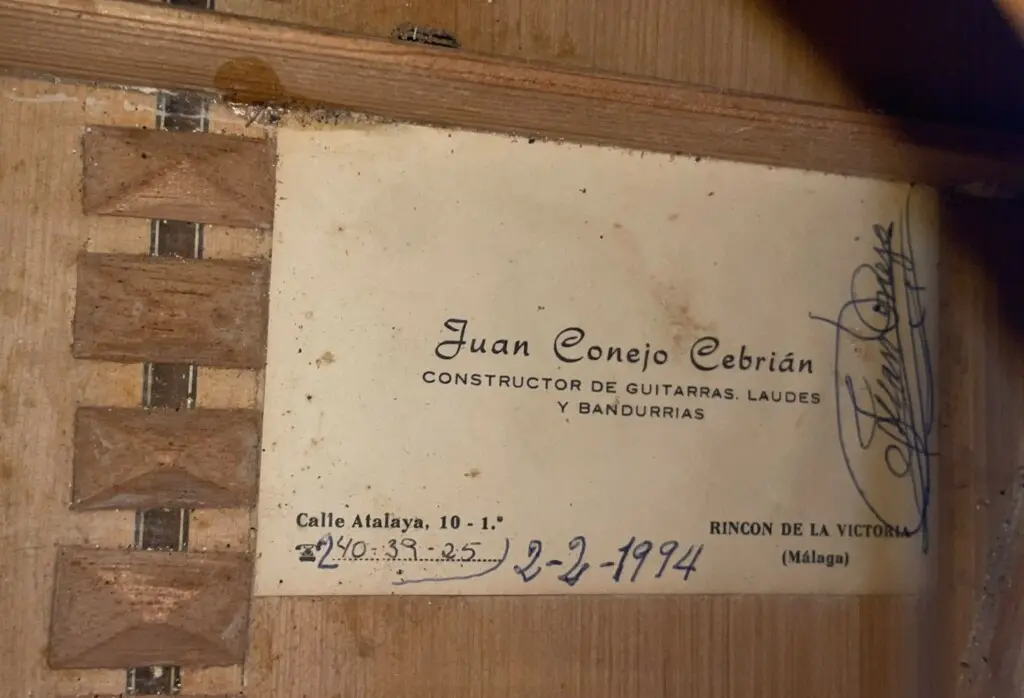 Juan Conejo Cebrián
CONSTRUCTOR DE GUITARRAS. LAUDES
Y BANDURRIAS
Calle Atalaya, 10 - 1.º
☎ 240-39-25
2-2-1994
RINCON DE LA VICTORIA
(Málaga)
Juan Conejo